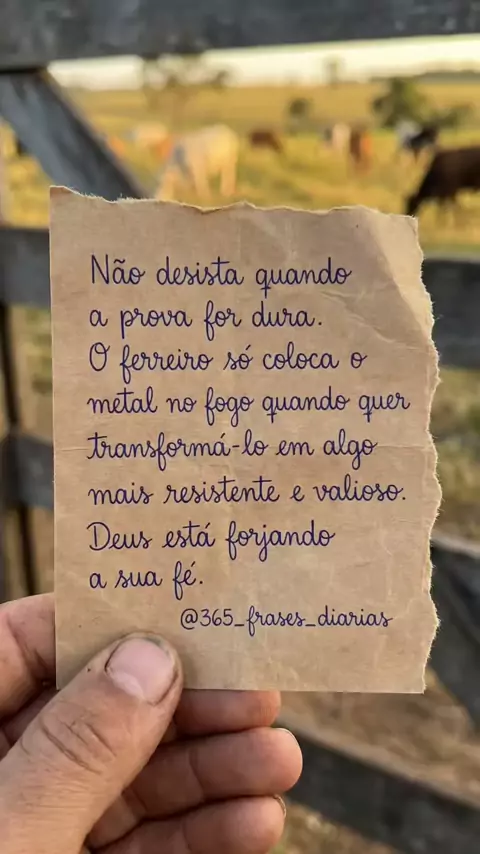 Não desista quando
a prova for dura.
O ferreiro só coloca o
metal no fogo quando quer
transformá-lo em algo
mais resistente e valioso.
Deus está forjando
a sua fé.
@365_frases_diarias